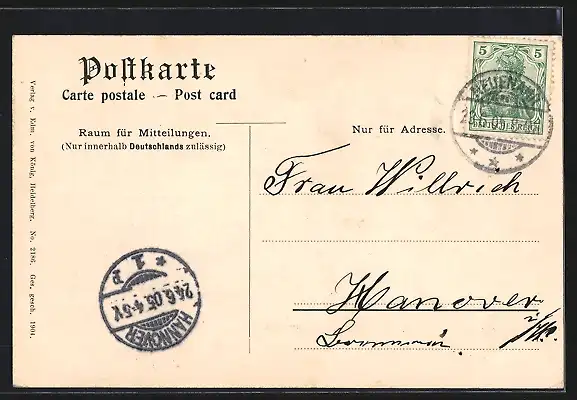 Postkarte
Carte postale — Post card
Raum für Mitteilungen.
(Nur innerhalb Deutschlands zulässig)
Nur für Adresse.
5 5
Frau Willrich
Hanover
HANNOVER
24.6.05.4-5
* 1 P
Verlag v. Edm. von König, Heidelberg. No. 2186. Ges. gesch. 1904.